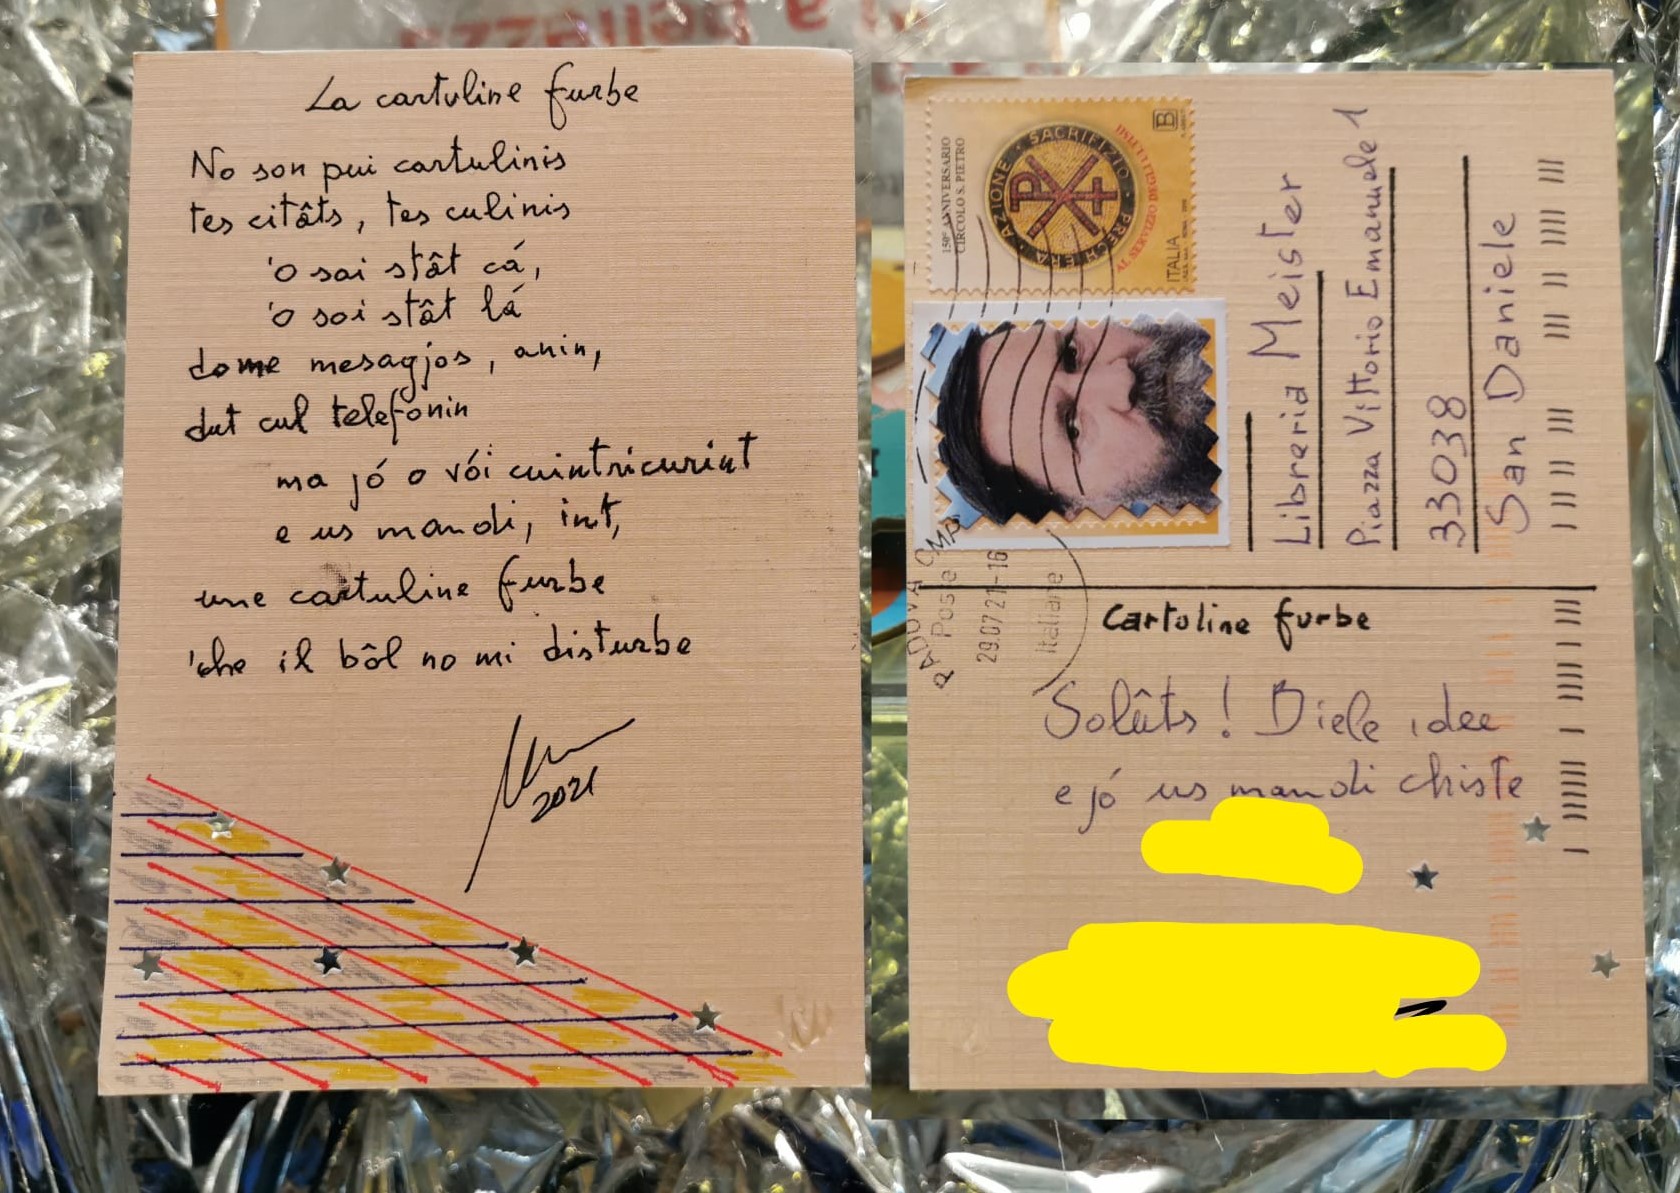 La cartuline furbe
No son pui cartulinis
tes citâts, tes culinis
'o soi stât cá,
'o soi stât lá
dome mesagjos, anin,
dut cul telefonin
ma jó o vói cuintricurint
e us mandi, int,
une cartuline furbe
'che il bôl no mi disturbe
2021
150° ANNIVERSARIO
CIRCOLO S. PIETRO
PREGHIERA · AZIONE · SACRIFIZIO
AL SERVIZIO DEGLI ULTIMI
ITALIA
B
Libreria Meister
Piazza Vittorio Emanuele 1
33038
San Daniele
PADOVA CMP
Poste
29.07.21-16
Italiane
Cartoline furbe
Salûts! Biele idee
e jó us mandi chiste